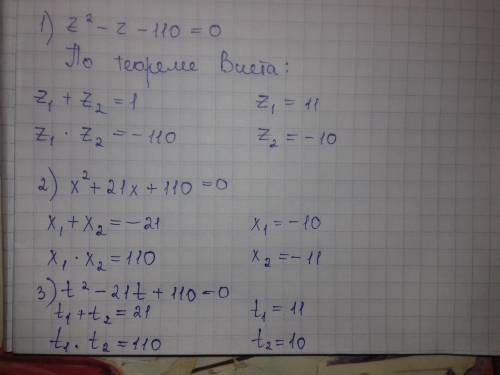 1) z² - z - 110 = 0
По теореме Виета:
z₁ + z₂ = 1 z₁ = 11
z₁ · z₂ = -110 z₂ = -10
2) x² + 21x + 110 = 0
x₁ + x₂ = -21 x₁ = -10
x₁ · x₂ = 110 x₂ = -11
3) t² - 21t + 110 = 0
t₁ + t₂ = 21 t₁ = 11
t₁ · t₂ = 110 t₂ = 10